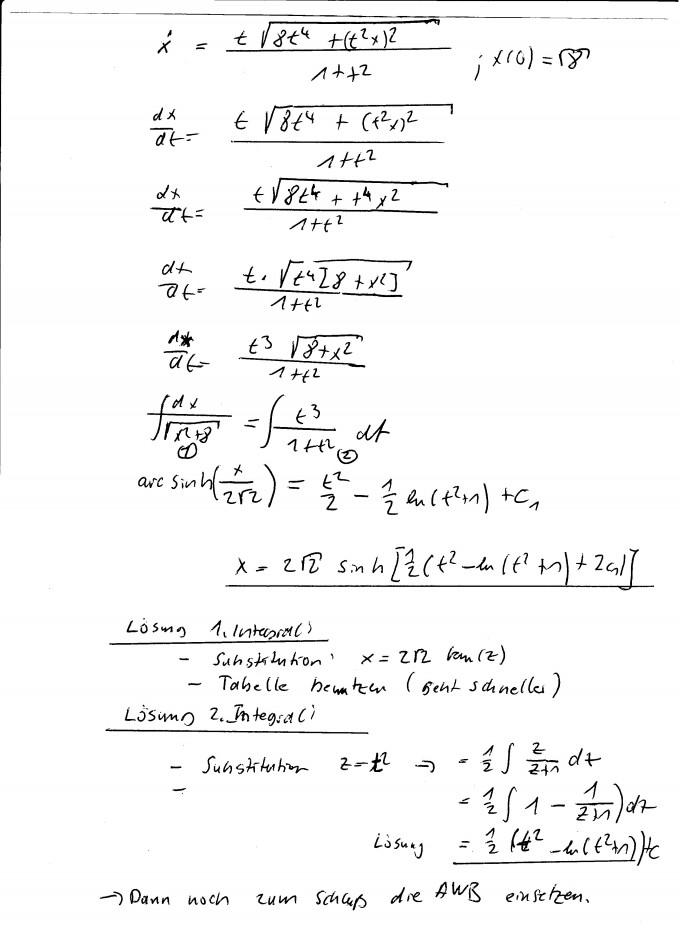 ẋ = t √(8t⁴ + (t²x)²) / (1+t²) ; x(0) = √8
dx/dt = t √(8t⁴ + (t²x)²) / (1+t²)
dx/dt = t √(8t⁴ + t⁴x²) / (1+t²)
dt/dt = t · √(t⁴[8 + x²]) / (1+t²)
dx/dt = t³ √(8+x²) / (1+t²)
∫ dx / √(x²+8) ① = ∫ t³ / (1+t²) ② dt
arc sinh(x / 2√2) = t²/2 - 1/2 ln(t²+1) + C₁
x = 2√2 sinh[1/2(t² - ln(t²+1) + 2c₁)]
Lösung 1. Integral:
- Substitution: x = 2√2 tan(z)
- Tabelle benutzen (geht schneller)
Lösung 2. Integral:
- Substitution z = t² → = 1/2 ∫ z/(z+1) dz
-
= 1/2 ∫ 1 - 1/(z+1)) dz
Lösung = 1/2 (t² - ln(t²+1)) + c
→ Dann noch zum Schluß die AWB einsetzen.